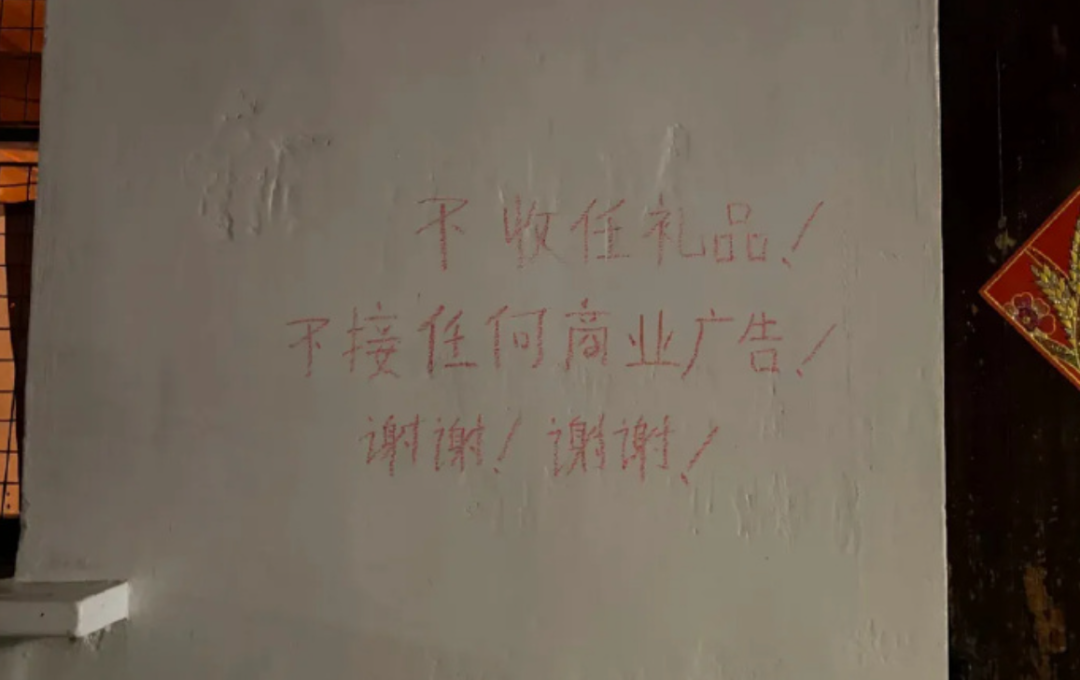 不收任礼品!
不接任何商业广告!
谢谢!谢谢!